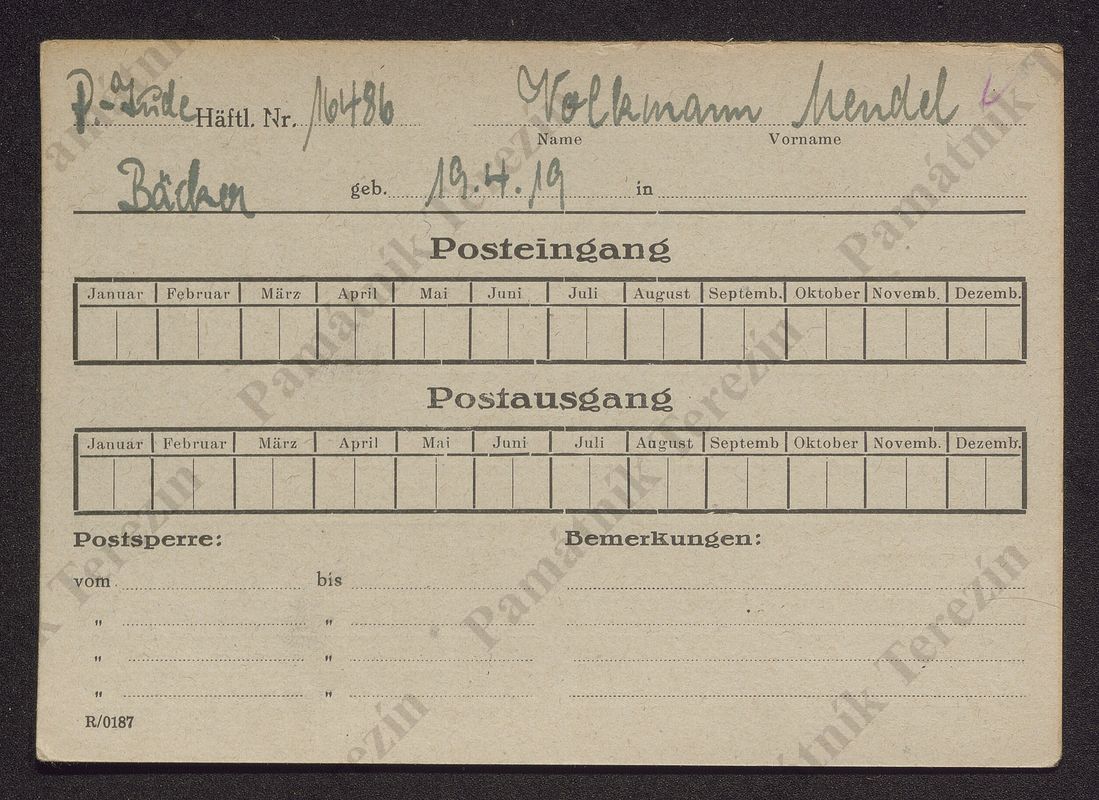 P.-Jude Häftl. Nr. 16486 Volkmann Mendel
Name Vorname
Bäcker geb. 19.4.19 in
Posteingang
Januar Februar März April Mai Juni Juli August Septemb. Oktober Novemb. Dezemb.
Postausgang
Januar Februar März April Mai Juni Juli August Septemb Oktober Novemb. Dezemb.
Postsperre: Bemerkungen:
vom bis
" "
" "
" "
R/0187
Památník Terezín